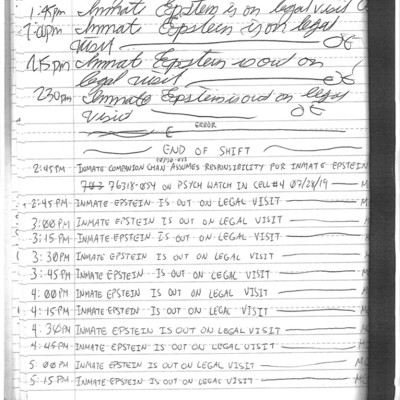 1:45pm Inmate Epstein is on legal visit
2:00pm Inmate Epstein is on legal
visit
2:15pm Inmate Epstein is out on
legal visit
2:30pm Inmate Epstein is out on legal
visit
E ERROR
END OF SHIFT
2:45PM INMATE COMPANION CHAN ASSUMES RESPONSIBILITY FOR INMATE EPSTEIN
76318-054 ON PSYCH WATCH IN CELL #4 07/28/19
2:45PM INMATE EPSTEIN IS OUT ON LEGAL VISIT
3:00PM INMATE EPSTEIN IS OUT ON LEGAL VISIT
3:15PM INMATE EPSTEIN IS OUT ON LEGAL VISIT
3:30PM INMATE EPSTEIN IS OUT ON LEGAL VISIT
3:45PM INMATE EPSTEIN IS OUT ON LEGAL VISIT
4:00PM INMATE EPSTEIN IS OUT ON LEGAL VISIT
4:15PM INMATE EPSTEIN IS OUT ON LEGAL VISIT
4:30PM INMATE EPSTEIN IS OUT ON LEGAL VISIT
4:45PM INMATE EPSTEIN IS OUT ON LEGAL VISIT
5:00PM INMATE EPSTEIN IS OUT ON LEGAL VISIT
5:15PM INMATE EPSTEIN IS OUT ON LEGAL VISIT